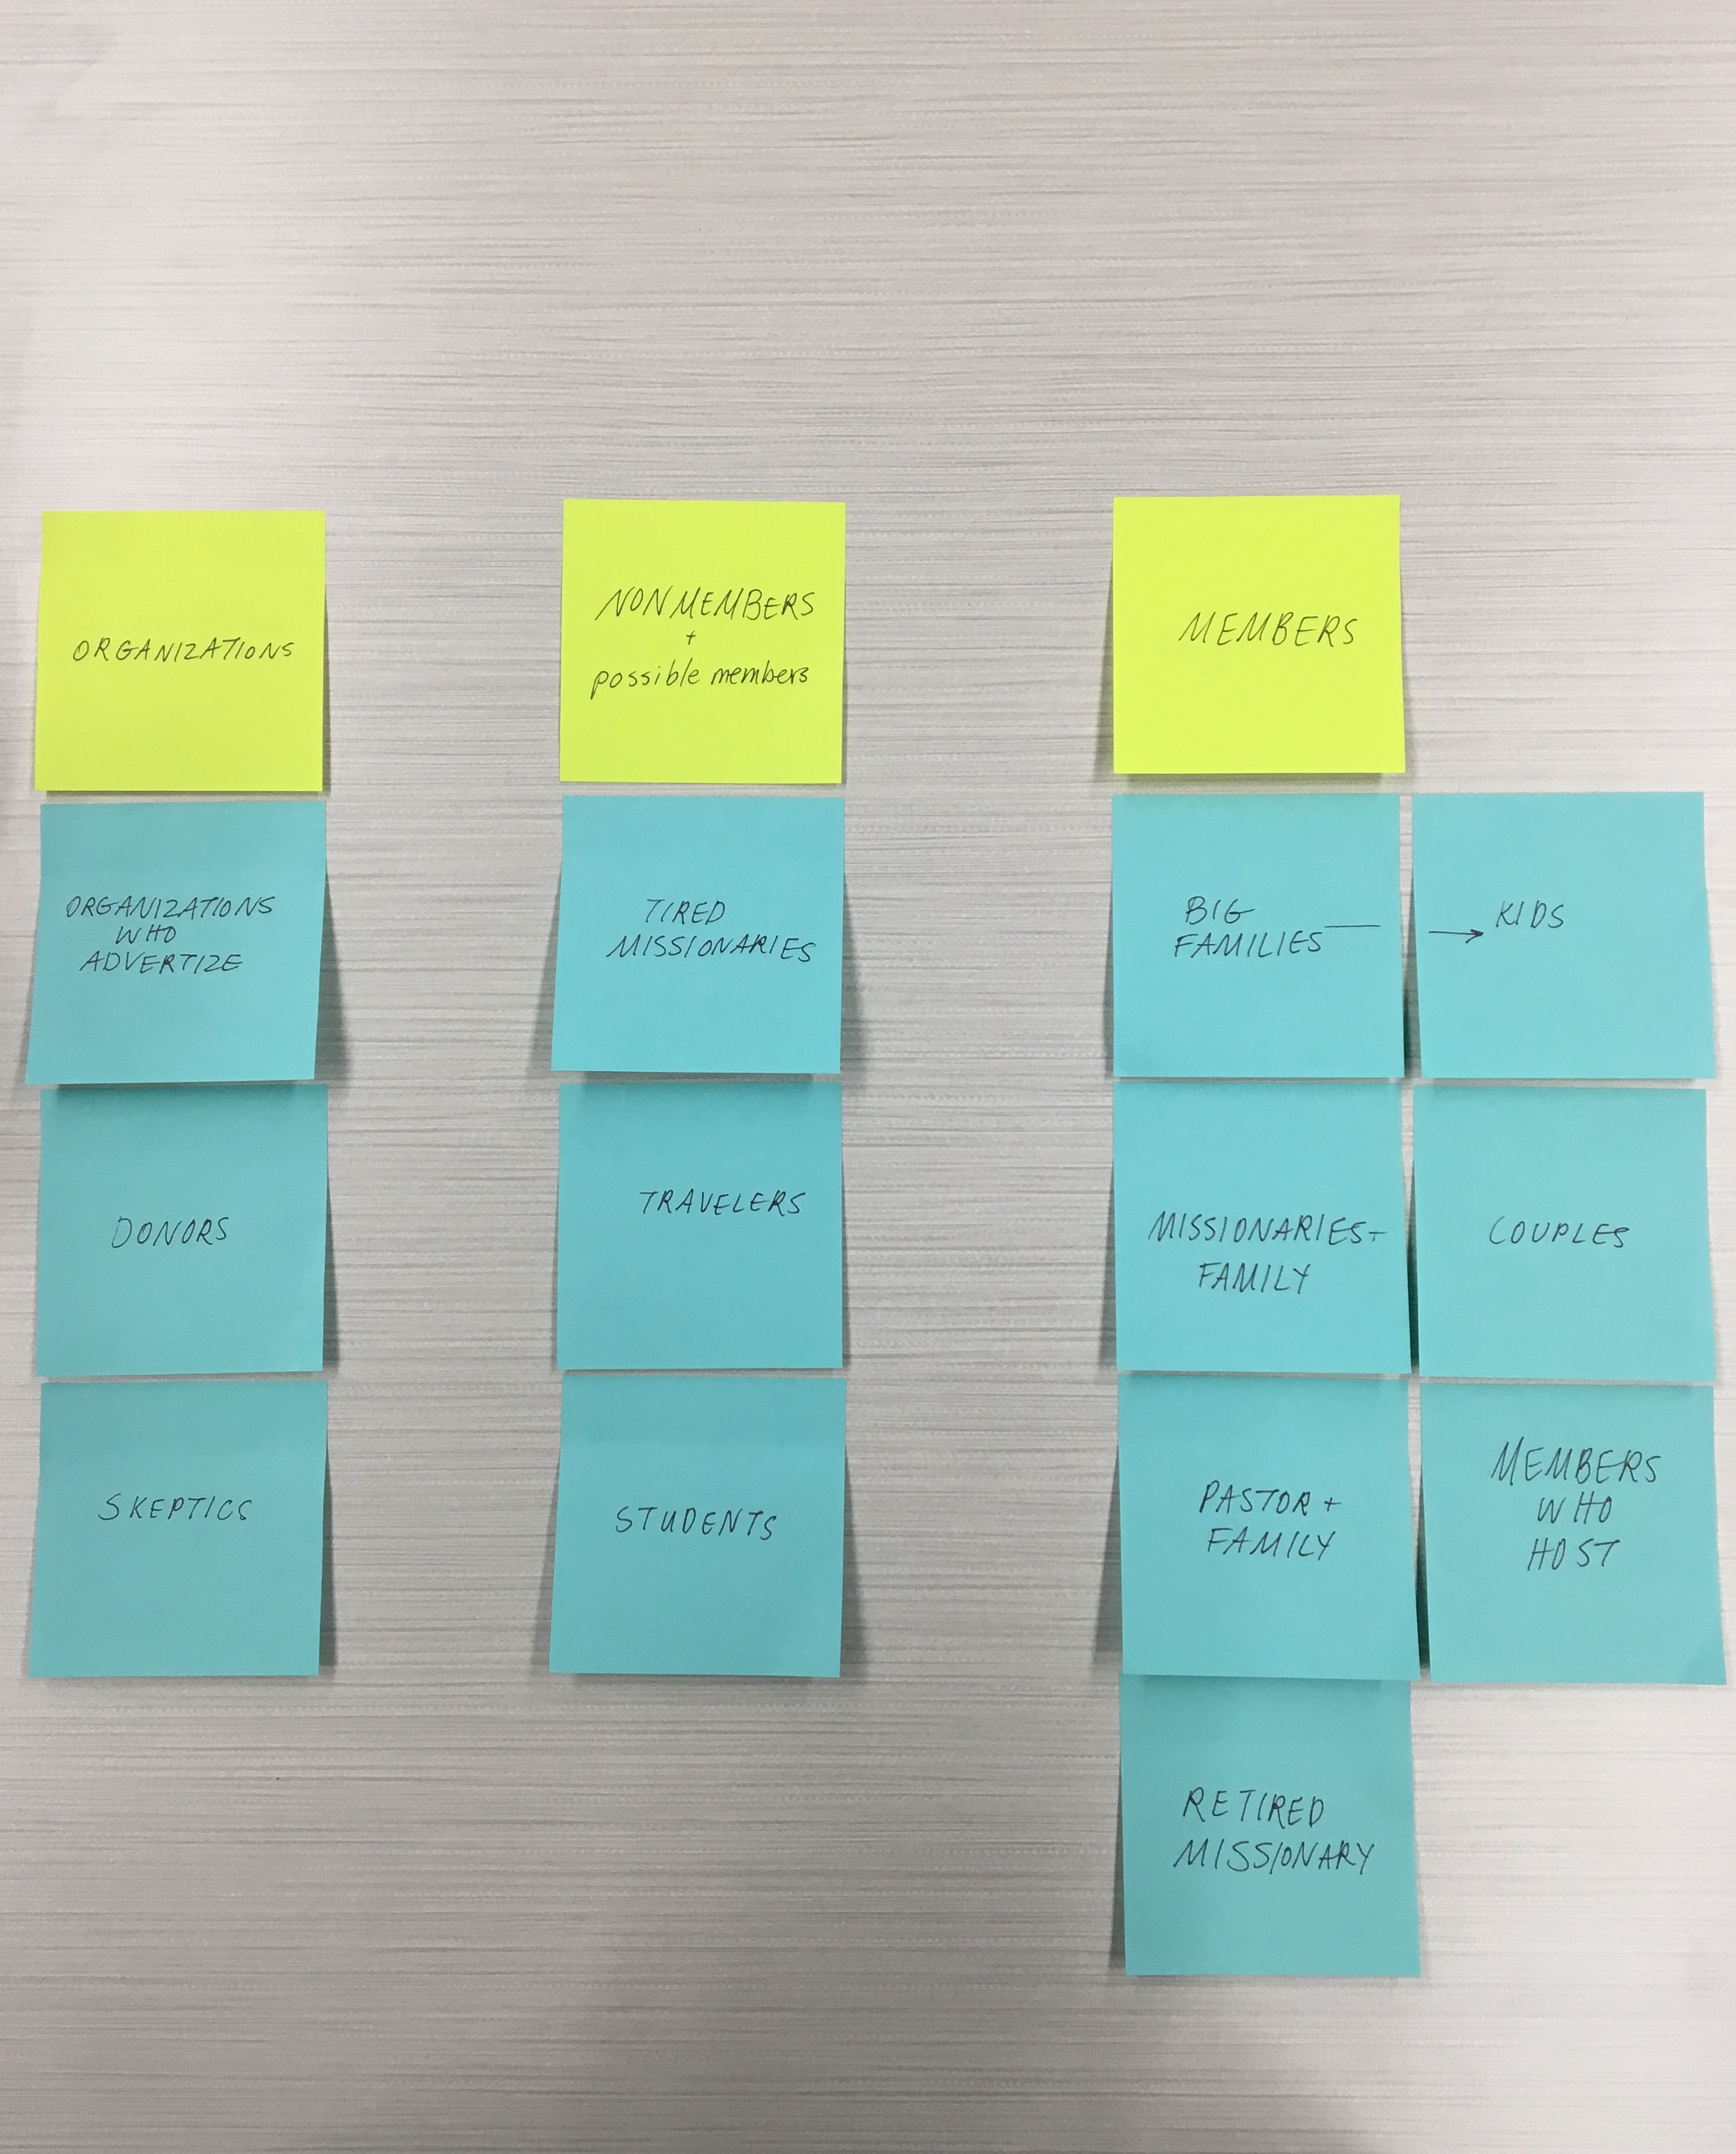 ORGANIZATIONS
ORGANIZATIONS
WHO
ADVERTIZE
DONORS
SKEPTICS
NONMEMBERS
+
possible members
TIRED
MISSIONARIES
TRAVELERS
STUDENTS
MEMBERS
BIG
FAMILIES
→ KIDS
MISSIONARIES+
FAMILY
COUPLES
PASTOR +
FAMILY
MEMBERS
WHO
HOST
RETIRED
MISSIONARY